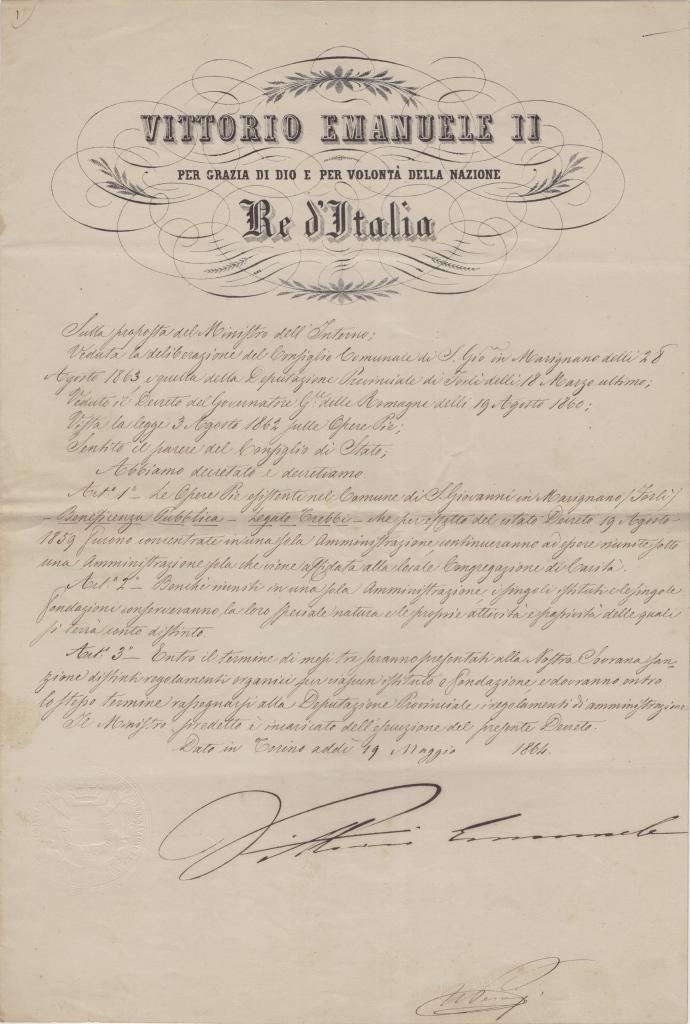 1
VITTORIO EMANUELE II
PER GRAZIA DI DIO E PER VOLONTÀ DELLA NAZIONE
Re d'Italia
Sulla proposta del Ministro dell'Interno;
Veduta la deliberazione del Consiglio Comunale di S. Gio. in Marignano delli 28
Agosto 1863 e quella della Deputazione Provinciale di Forlì delli 18 Marzo ultimo;
Veduto il Decreto del Governatore Gle. delle Romagne delli 19 Agosto 1860;
Vista la legge 3 Agosto 1862 sulle Opere Pie;
Sentito il parere del Consiglio di Stato;
Abbiamo decretato e decretiamo
Art.º 1º — Le Opere Pie esistenti nel Comune di S. Giovanni in Marignano /Forlì/
— Beneficenza Pubblica — Legato Trebbi — che per effetto del citato Decreto 19 Agosto
1859 furono concentrate in una sola Amministrazione, continueranno ad essere riunite sotto
una Amministrazione sola che viene affidata alla locale Congregazione di Carità.
Art.º 2º — Benchè riuniti in una sola Amministrazione, i singoli istituti e le singole
fondazioni conserveranno la loro speciale natura e le proprie attività e passività delle quali
si terrà conto distinto.
Art.º 3º — Entro il termine di mesi tre saranno presentati alla Nostra Sovrana san-
zione distinti regolamenti organici per ciascun istituto o fondazione, e dovranno entro
lo stesso termine rassegnarsi alla Deputazione Provinciale i regolamenti di amministrazione
Il Ministro predetto è incaricato dell'esecuzione del presente Decreto.
Dato in Torino addì 19 Maggio 1864.
Vittorio Emanuele